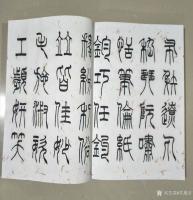 布射遼丸
嵇琴阮嘯
恬筆倫紙
鈞巧任釣
釋紛利俗
並皆佳妙
毛施淑姿
工顰妍笑